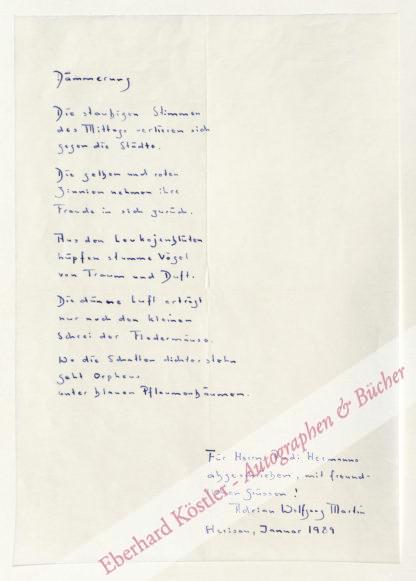 Dämmerung
Die staubigen Stimmen
des Mittags verlieren sich
gegen die Städte.
Die gelben und roten
Zinnien nehmen ihre
Freude in sich zurück.
Aus den Levkojenblüten
hüpfen stumme Vögel
von Traum und Duft.
Die dünne Luft erträgt
nur noch den kleinen
Schrei der Fledermäuse.
Wo die Schatten dichter stehn
geht Orpheus
unter blauen Pflaumenbäumen.
Für Herrn Rudi Hermanns
abgeschrieben, mit freund-
lichen Grüssen!
Adrian Wolfgang Martin
Herisau, Januar 1989
Eberhard Köstler - Autographen & Bücher